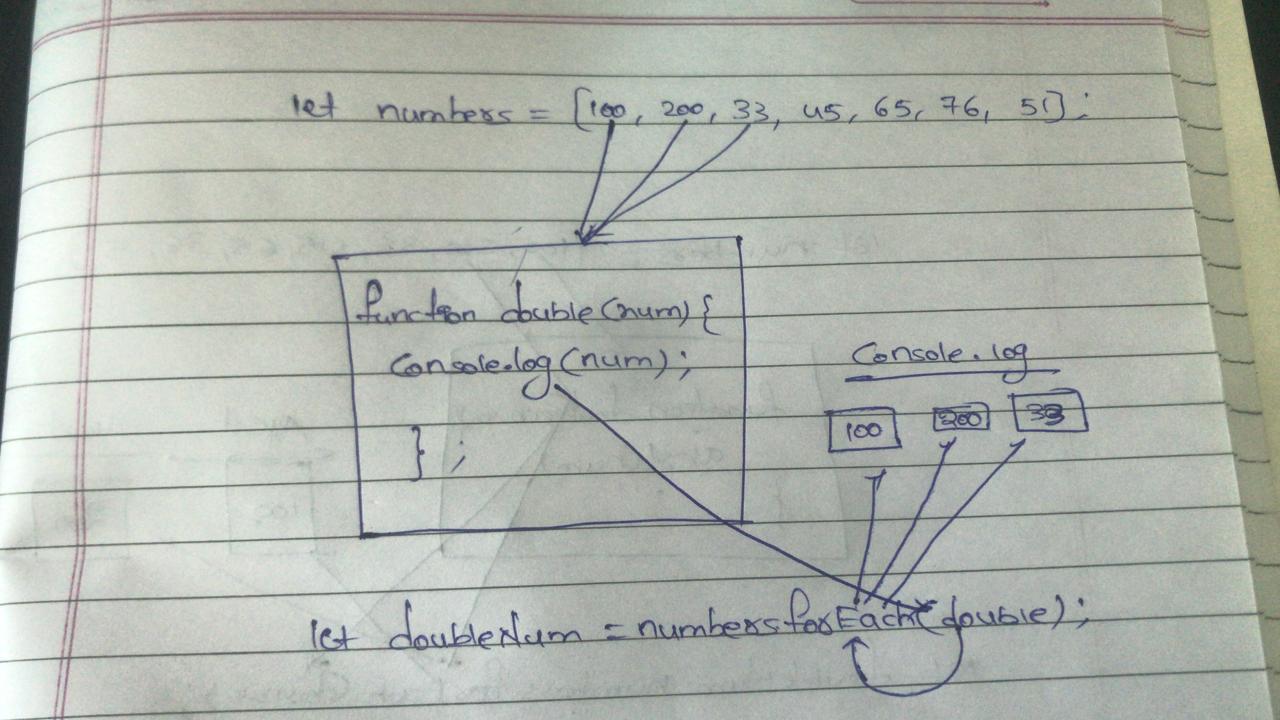 let numbers = [100, 200, 33, 45, 65, 76, 51];
function double(num) {
console.log(num);
};
Console.log
100 200 33
let doubleNum = numbersforEach(double);